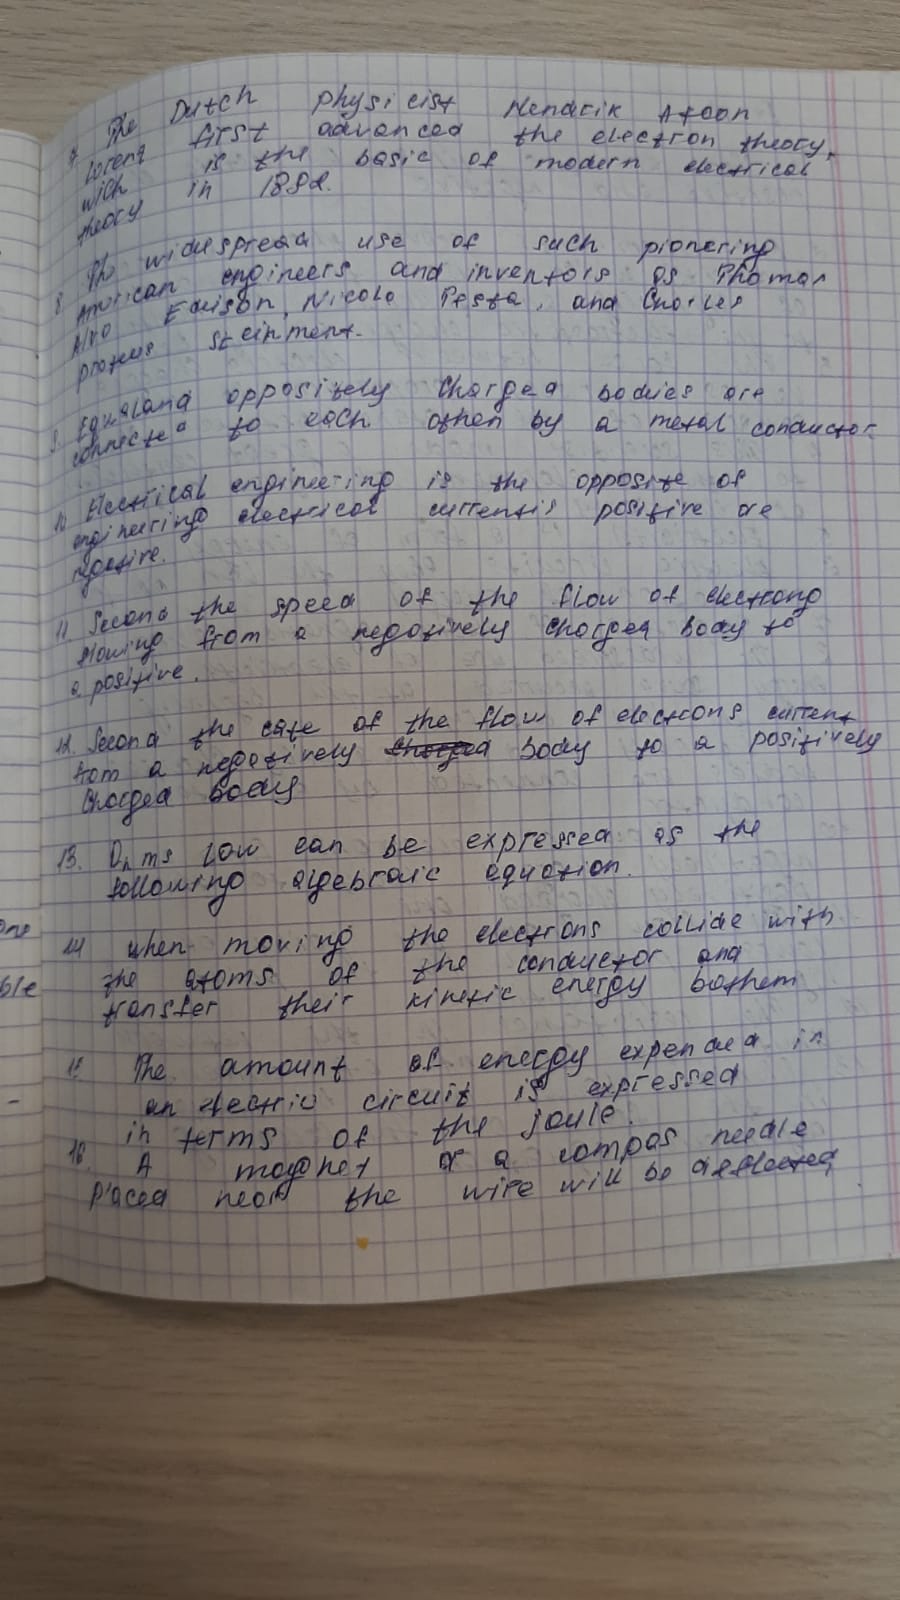 7. The Dutch physicist Hendrik Atoon
Loreng first advanced the electron theory,
wich is the basic of modern electrical
theory in 1892.
8. The widespread use of such pionering
American engineers and inventors as Thomas
Alvo Edison, Nicola Testa, and Charles
proteus steinment.
9. Equaland oppositely charged bodies are
connected to each othen by a metal conductor.
10 Electrical engineering is the opposite of
engineering electrical currentis positive are
negative.
11. Second the speed of the flow of electrong
flowing from a negatively charged body to
a positive.
12. Second the cate of the flow of electrons current
from a negatively charged body to a positively
Charged body
13. Onms Low can be expressed as the
following algebraic equation.
14 when moving the electrons collide with
the atoms of the conductor and
transfer their kinetic energy bothem
15. The amount of energy expended in
an electric circuit is expressed
in terms of the joule.
16. A magnet or a compas needle
Placed near the wire will be deflected
one
ble
-